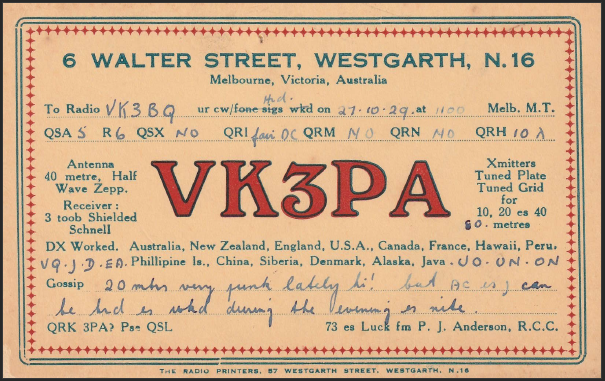 6 WALTER STREET, WESTGARTH, N.16
Melbourne, Victoria, Australia
Hrd.
To Radio VK3BQ ur cw/fone sigs wkd on 27.10.29 at 1100 Melb. M.T.
QSA 5 R 6 QSX NO QRI fair DC QRM NO QRN NO QRH 10 λ
Antenna
40 metre, Half
Wave Zepp.
Receiver:
3 toob Shielded
Schnell
VK3PA
Xmitters
Tuned Plate
Tuned Grid
for
10, 20 es 40
80. metres
DX Worked. Australia, New Zealand, England, U.S.A., Canada, France, Hawaii, Peru.
VQ.J.D.EA. Phillipine Is., China, Siberia, Denmark, Alaska, Java. UO.UN.ON
Gossip 20 mtrs very punk lately hi! but AC es J can
be hrd es wkd during the evening es nite.
QRK 3PA? Pse QSL 73 es Luck fm P. J. Anderson, R.C.C.
THE RADIO PRINTERS, 57 WESTGARTH STREET, WESTGARTH, N.16